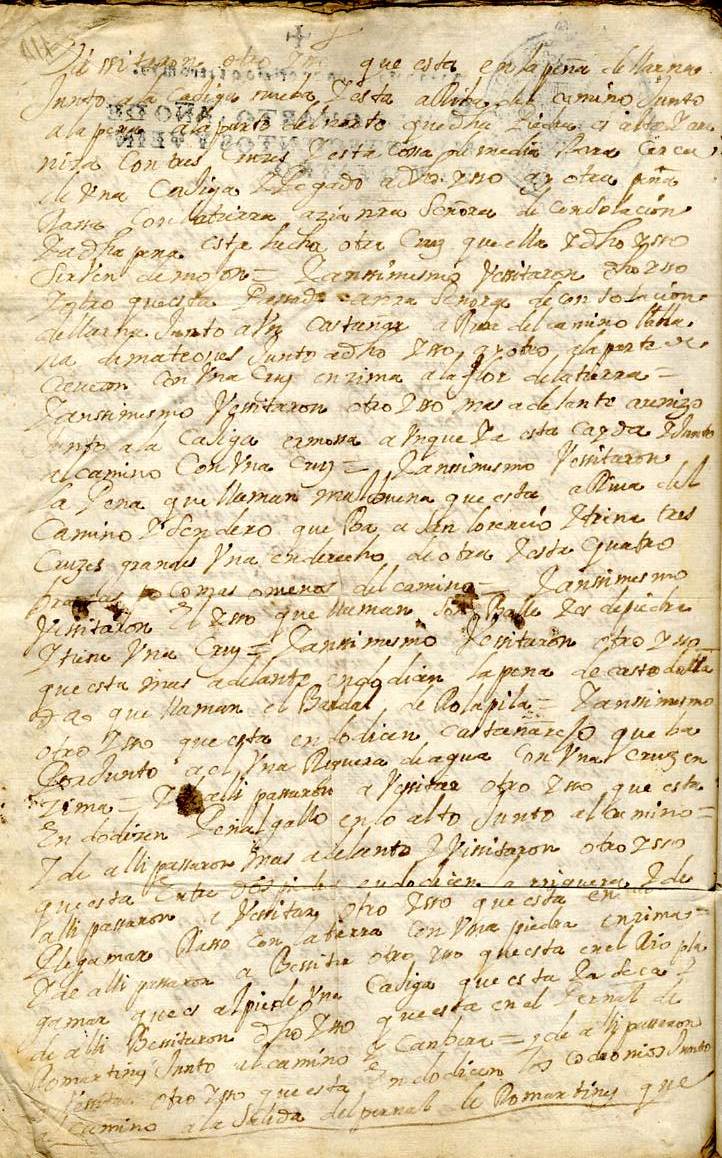 Vissitaron otro ysso que esta en la pena de llarna
Junto a la Cadiga nueba, Y esta allido del camino Junto
a la pena a la parte del norte que dha piedra es alta Y ar
niza Con tres Cruzes Y esta Cossa de media Bara Cerca
de Una Cadiga Y Pegado a dho ysso ay otra peña
Rassa Con la tierra azia nra Señora de Consolacion
Y a dha pena este hecho otra Cruz que ella Y dho ysso
Sirben de mojon = Y anssimesmo Vissitaron dho ysso
Y otro questa Pasado a nra Señora de Consolacion
de llarna Junto a Un Castañar aRiba del camino
de mateo Junto a dho ysso, ay otro a la parte de
Con Una Cruz enzima a la flor de la tierra =
Y anssimesmo Vissitaron otro ysso mas adelante
Junto a la Cadiga ermossa aUnque Ya esta Cayda Y Junto
al camino Con Una Cruz = Y anssimesmo Vissitaron
la Pena que llaman malbuena que esta aRiva del
Camino Y Sendero que Ba a San lorencio Y tiene tres
Cruzes grandes Una en derecho de otra Y esta quatro
brazas po co mas o menos del camino = Y anssimesmo
Vissitaron El ysso que llaman de Balle Y es de piedra
Y tiene Una Cruz = Y anssimesmo Vissitaron otro ysso
que esta mas adelante en do dicen la pena de
que llaman el Bardal de Rolapila = Y anssimesmo
otro ysso que esta en do dicen Castañarejo que ba
Por Junto a el Una Riguera de agua Con Una Cruz en
zima = Y de alli passaron a Vissitar otro ysso que esta
En do dizen Peñalgallo en lo alto Junto al camino =
Y de alli passaron mas adelante Y Vissitaron otro ysso
que esta Entre en do dicen a rriguera Y de
alli passaron a Vissitar otro ysso que esta en
Plegamar Rasso Con la tierra Con Una piedra enzima =
Y de alli passaron a Bessitar otro ysso que esta en el Rio ple
gamar que es al pie de Una Cadiga que esta Y
de alli Bessitaron dho ysso que esta en el Pernal de
Romartiny Junto al camino de Canbera = Y de alli passaron
Vessitar otro ysso que esta En do dicen los Codronios Junto
al Camino a la Salida del pernal de Romartiny que